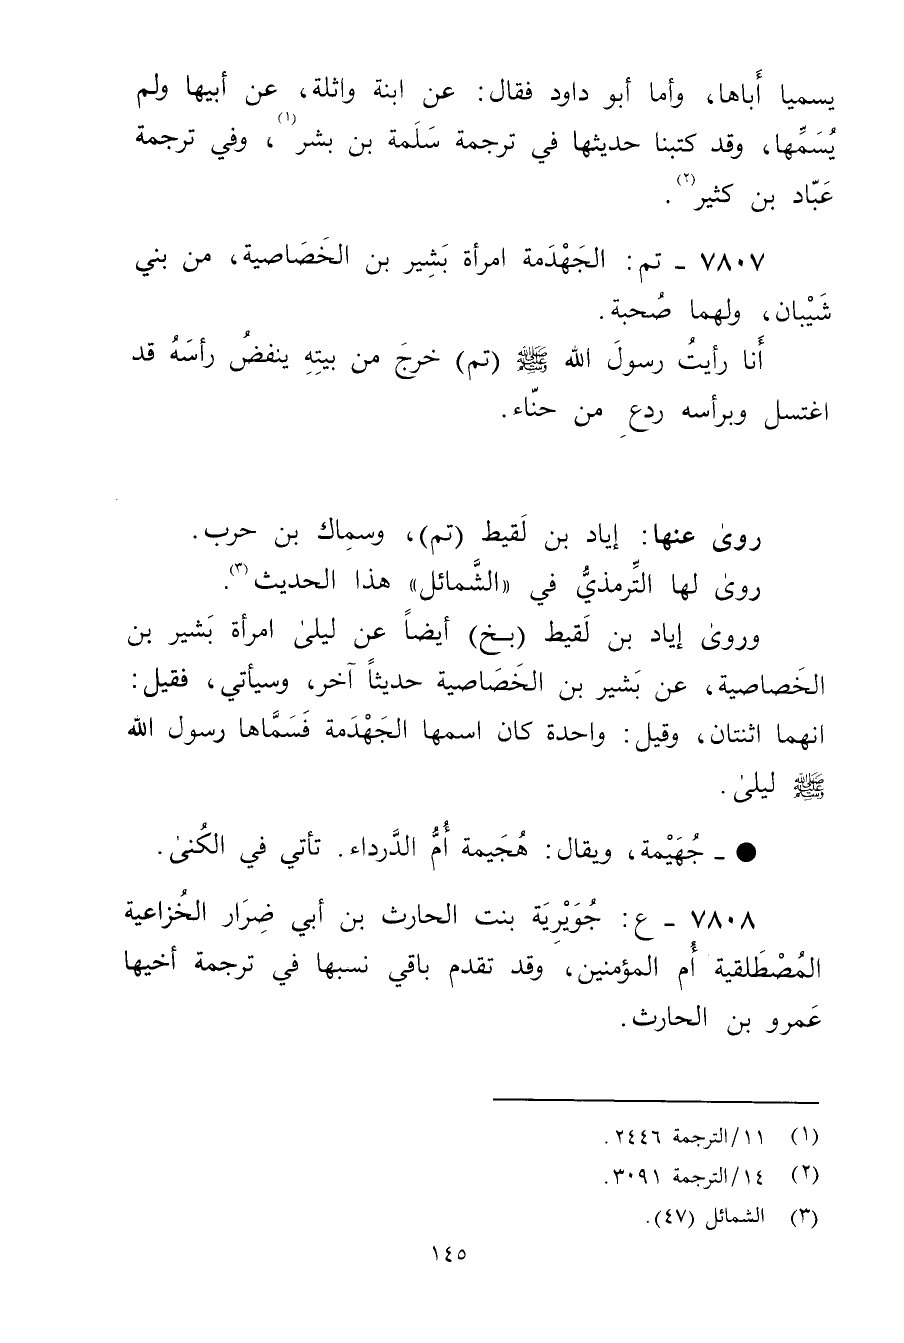 يسميا أَباها، وأما أبو داود فقال: عن ابنة واثلة، عن أبيها ولم
يُسَمِّها، وقد كتبنا حديثها في ترجمة سَلَمة بن بشر(١)، وفي ترجمة
عَبّاد بن كثير(٢).
٧٨٠٧ ـ تم: الجَهْدَمة امرأة بَشِير بن الخَصَاصية، من بني
شَيْبان، ولهما صُحبة.
أَنا رأيتُ رسولَ الله ﷺ (تم) خرجَ من بيتِهِ ينفضُ رأسَهُ قد
اغتسل وبرأسه ردع من حنّاء.
روىٰ عنها: إياد بن لَقيط (تم)، وسماك بن حرب.
روىٰ لها التِّرمذيُّ في «الشَّمائل» هذا الحديث(٣).
وروىٰ إياد بن لَقيط (بخ) أيضاً عن ليلىٰ امرأة بَشير بن
الخَصاصية، عن بَشير بن الخَصَاصية حديثاً آخر، وسيأتي، فقيل:
انهما اثنتان، وقيل: واحدة كان اسمها الجَهْدَمة فَسَمَّاها رسول الله
ﷺ ليلىٰ.
● ـ جُهَيْمة، ويقال: هُجَيمة أُمُّ الدَّرداء. تأتي في الكُنىٰ.
٧٨٠٨ ـ ع: جُوَيْرِيَة بنت الحارث بن أبي ضِرَار الخُزاعية
المُصْطَلقية أُم المؤمنين، وقد تقدم باقي نسبها في ترجمة أخيها
عَمرو بن الحارث.
(١) ١١/الترجمة ٢٤٤٦.
(٢) ١٤/الترجمة ٣٠٩١.
(٣) الشمائل (٤٧).
١٤٥